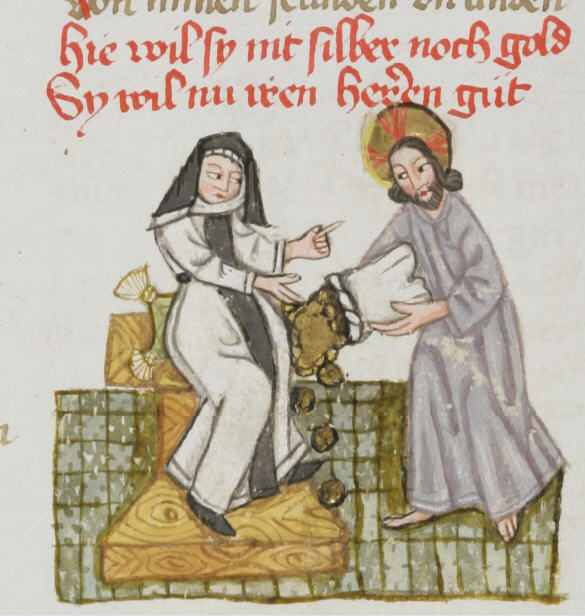 hie wil ſy nit ſilber noch gold
Sy wil nu iren herren güt